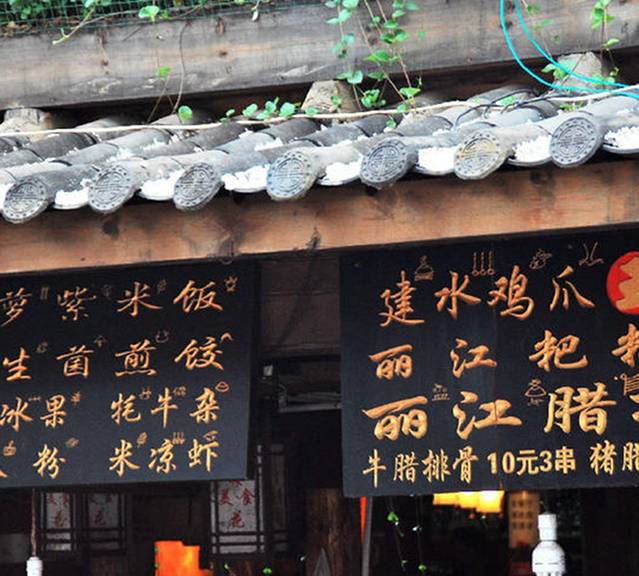 萝 紫 米 饭
生 菌 煎 饺
冰 果 牦 牛 杂
粉 米 凉 虾
建 水 鸡 爪
丽 江 粑
丽 江 腊
牛 腊 排 骨 10元3串 猪 腊